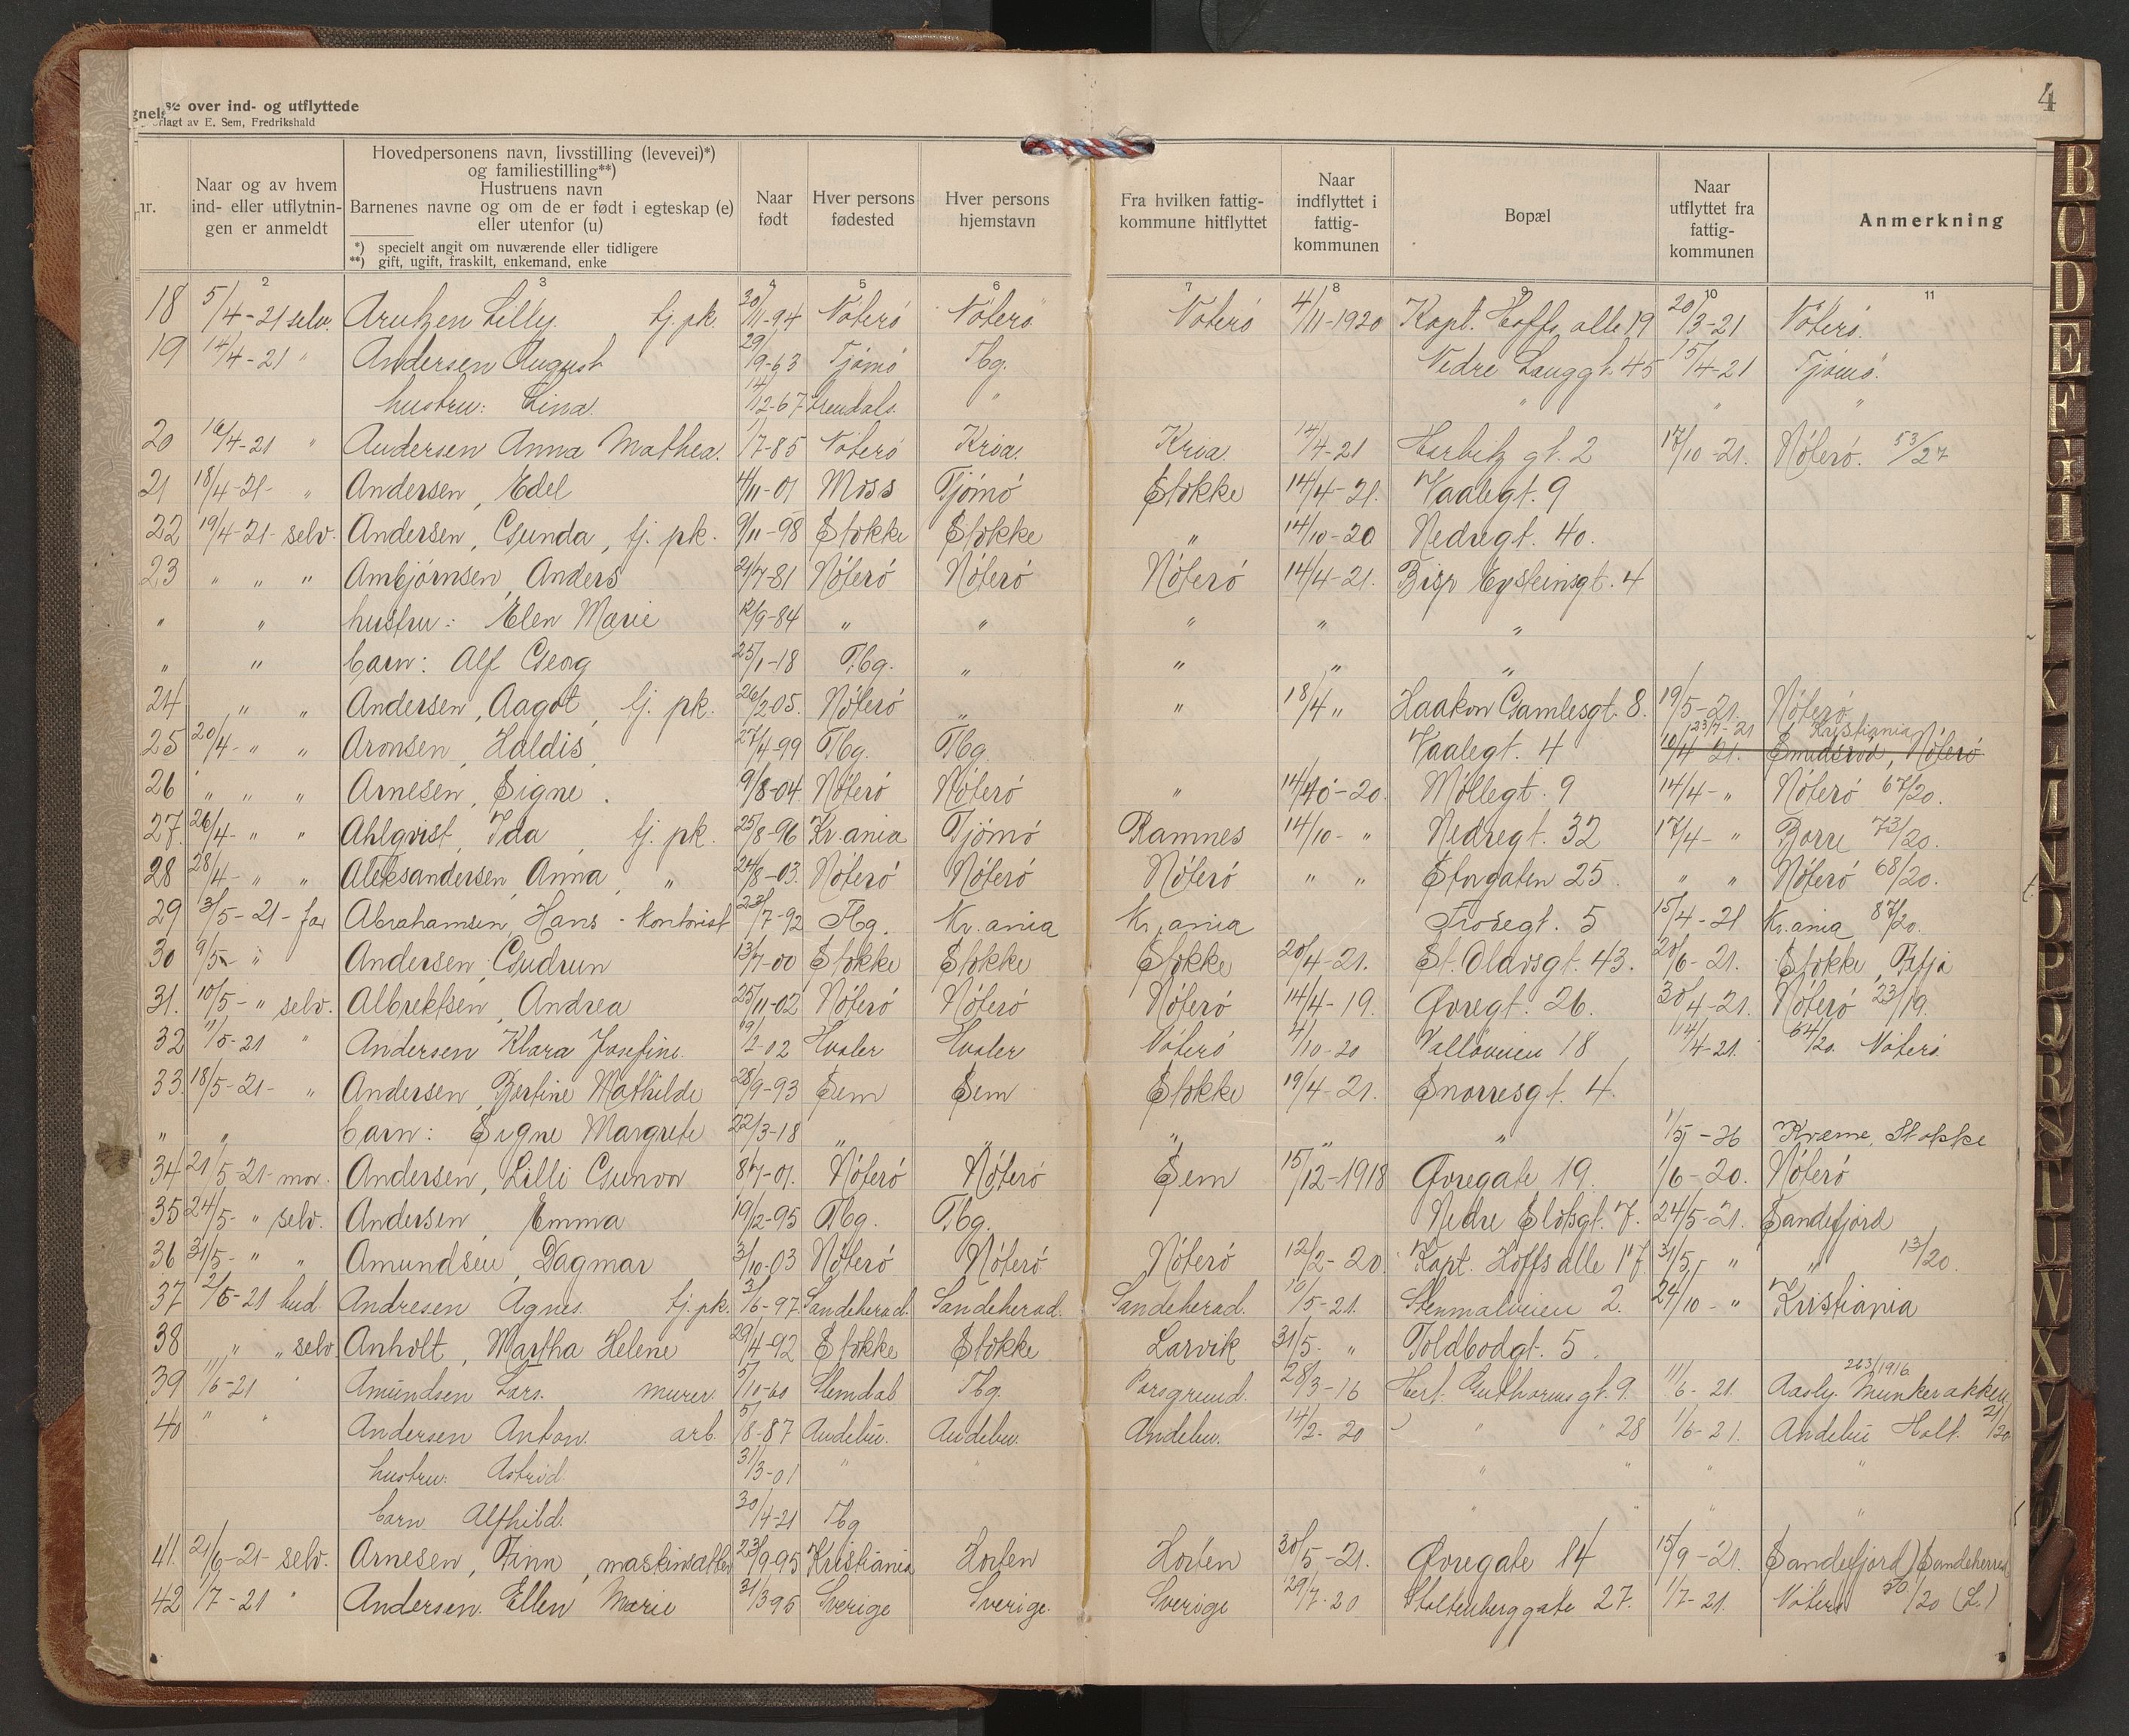 se over ind- og utflyttede
gnels rlagt av E. Sem, Fredrikshald
4
nr. | Naar og av hvem ind- eller utflytnin-gen er anmeldt | Hovedpersonens navn, livsstilling (levevei)*) og familiestilling**) Hustruens navn Barnenes navne og om de er født i egteskap (e) eller utenfor (u) *) specielt angit om nuværende eller tidligere **) gift, ugift, fraskilt, enkemand, enke | Naar født | Hver persons fødested | Hver persons hjemstavn | Fra hvilken fattig-kommune hitflyttet | Naar indflyttet i fattig-kommunen | Bopæl | Naar utflyttet fra fattig-kommunen | Anmerkning
2 3 4 5 6 7 8 9 10 11
18 5/4-21 selv. Arntzen Lilly. tj. pk. 30/11-94 Nøterö Nöterö Nøterö 4/11-1920 Kapt. Hoffs alle 19 20/3-21 Nöterö.
19 14/4-21 " Andersen August 29/9-63 Tjömö Tbg. Nedre Langgt. 45 15/4-21 Tjömö.
hustru: Lina. 14/12-67 " " " "
20 16/4-21 " Andersen Anna Mathea. 1/7-85 Nöterö Kria. Kria. 14/4-21 Harbitz gt. 2 17/10-21. Nöterö. 53/27
21 18/4-21- " Andersen, Edel 4/11-01 Moss Tjömö Stokke 14/4-21. Vaalegt. 9
22 19/4-21- selv. Andersen, Gunda, tj. pk. 9/11-98 Stokke Stokke " 14/10-20 Nedregt. 40.
23 " " " Ambjörnsen, Anders 21/7-81 Nöterö Nöterö Nöterö 14/4-21. Bisp Eysteinsgt. 4
" " hustru: Elen Marie 12/9-84 " " " " "
" " barn: Alf Georg 25/1-18 Tbg. " " " "
24 " " Andersen, Aagot, tj. pk. 26/2-05. Nöterö " " 18/4 " Haakon Gamlesgt. 8. 19/5-21. Nöterö
23/7-21 Kristiania
25 20/4- " " Aronsen, Haldis, 27/4-99 Tbg. Tbg. Vaalegt. 4 19/4 21. Smidsröd, Nöterö
26 " " " Arnesen, Signe. 9/8-04 Nöterö Nöterö " 14/10-20. Möllegt. 9 14/4- " Nöterö 67/20.
27. 26/4- " " Ahlqvist, Ida, tj. pk. 25/8-96 Kr.ania Tjömö Ramnes 14/10- " Nedregt. 32 17/4- " Borre 73/20.
28 28/4- " " Aleksandersen, Anna, " 24/8-03. Nöterö Nöterö Nöterö " " Storgaten 25. " " Nöterö 68/20.
29 3/5-21- far Abrahamsen, Hans - kontorist 23/7-92 Tbg. Kr.ania Kr.ania Frodegt. 5 15/4-21 Kr.ania 87/20.
30 9/5- " Andersen, Gudrun 13/7-00 Stokke Stokke Stokke 20/4-21. St. Olavsgt. 43. 20/6-21. Stokke,
31. 10/5- " selv. Albrektsen, Andrea 25/11-02 Nöterö Nöterö Nöterö 14/4-19. Øvregt. 26. 30/4-21. Nöterö 23/19.
32 11/5-21 " Andersen Klara Josefine. 19/2-02 Hvaler Hvaler Nöterö 4/10-20 Vallöveien 18 14/4-21. 64/20. Nöterö
33. 18/5-21- " Andersen, Bertine Mathilde 28/9-93 Sem Sem Stokke 19/4-21. Snorresgt. 4.
" " barn: Signe Margrete 22/3-18 " " " " " 1/5-26 Kræme, Stokke
34 21/5-21- mor. Andersen, Lilli Gunvor 8/7-01. Nöterö Nöterö Sem 15/12-1918 Øvregate 19. 1/6-20. Nöterö
35 24/5- " selv. Andersen, Emma 19/2-95 Tbg. Tbg. Nedre Slotsgt. 7. 24/5-21. Sandefjord
36 31/5- " " Amundsen, Dagmar 3/10-03 Nöterö Nöterö Nöterö 12/2-20 Kapt. Hoffs alle 17 31/5- " " 13/20.
37 2/6-21 bud Andresen Agnes. tj. pk. 3/6-97 Sandeherad. Sandeherad. Sandeherad. 10/5-21. 2. 24/10- " Kristiania
38 " " selv. Anholt, Martha Helene 29/4-92 Stokke Stokke Larvik 31/5- " Toldbodgt. 5.
39 11/6-21 " Amundsen Lars. murer. 5/10-60 Slemdal Tbg. Porsgrund. 28/3-16 Hert. Guthormsgt. 9. 11/6-21. Aasly. Munkerakken 263/1916
40 " " Andersen Anton. arb. 5/8-87 Andebu. Andebu. Andebu. 14/2-20 " " 28 1/6-21. Andebu Holt. 21/20
hustru: Astrid. 31/3-01 " " " " " "
barn Alfhild. 30/4-21 Tbg " " "
41. 21/6-21- selv. Arnesen, Finn, maskinsætter 23/9-95 Kristiania Horten Horten 30/5-21. Øvregate 14 15/9-21. Sandefjord) Sandeherred
42 1/7-21 " Andersen. Ellen Marie 31/3 95 Sverige Sverige. Sverige 29/7-20 Stoltenberggate 27. 1/7-21. Nöterö 50/20 (L.)
B
C
D
E
F
G
H
I
J
K
L
M
N
O
P
Q
R
S
T
U
V
X
Y